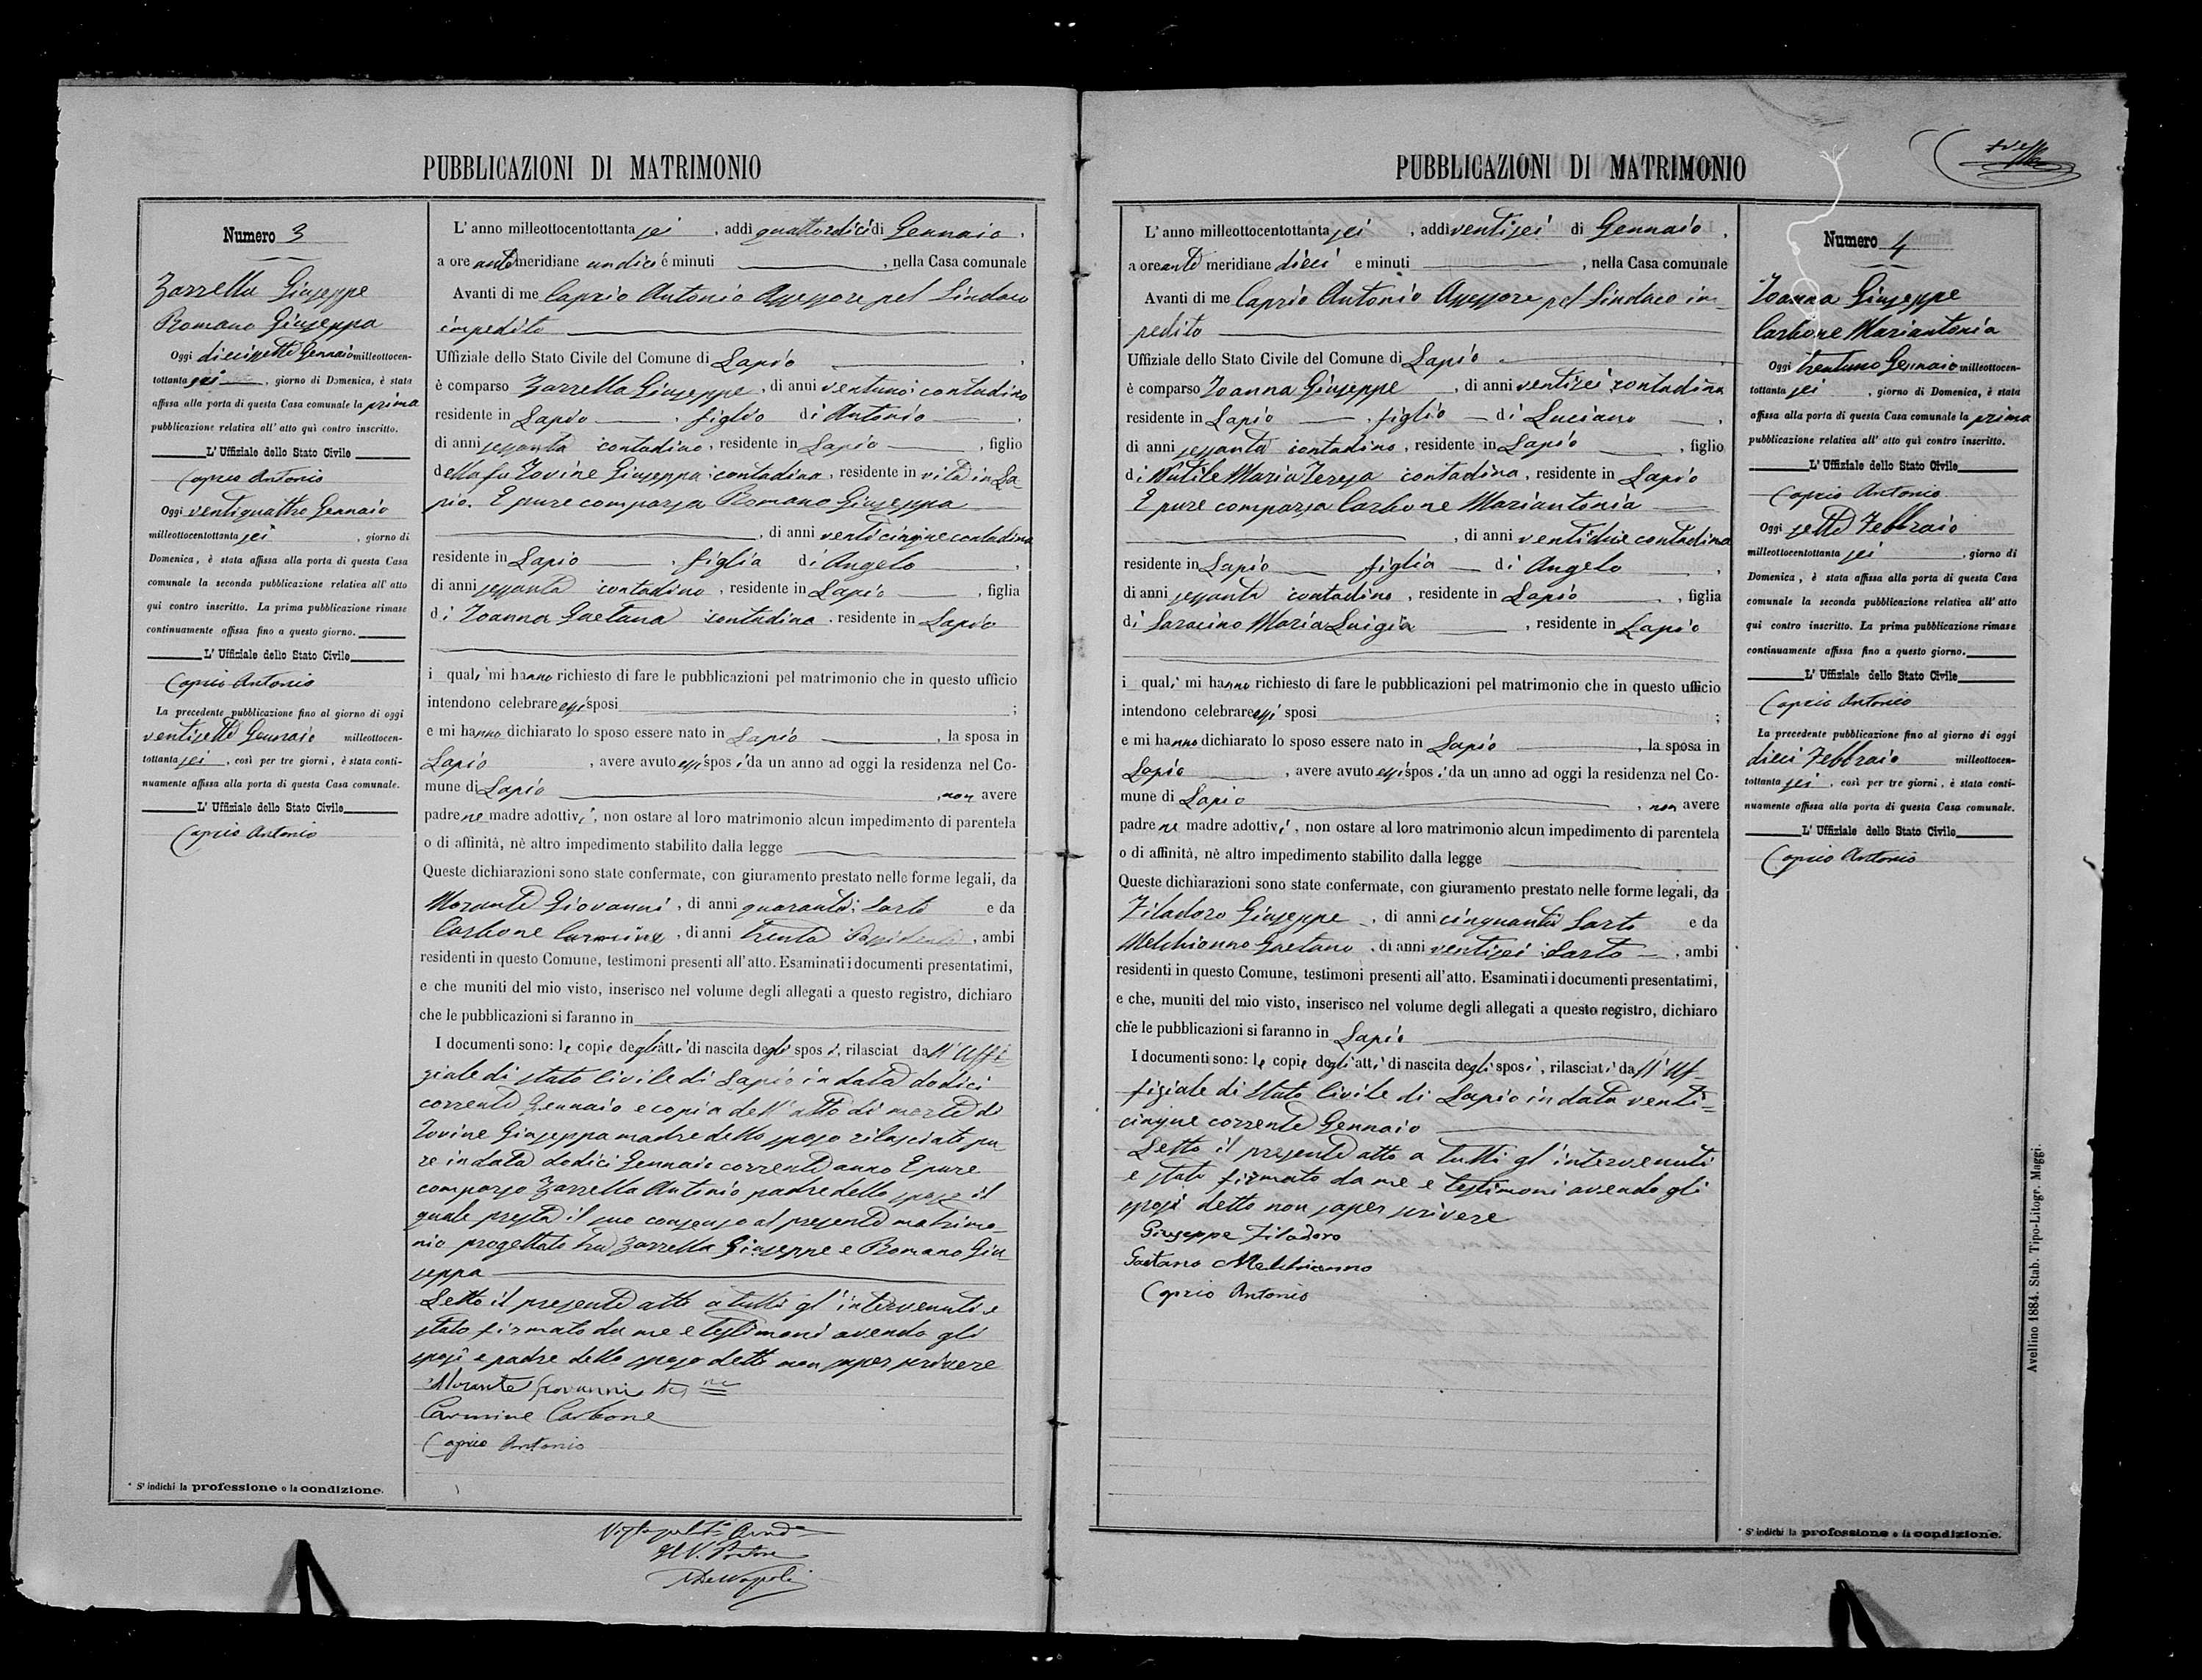 PUBBLICAZIONI DI MATRIMONIO
Numero 3
Zarrella Giuseppe
Romano Giuseppa
Oggi diecisette Gennaio milleottocen-
tottanta sei, giorno di Domenica, è stata
affissa alla porta di questa Casa comunale la prima
pubblicazione relativa all' atto quì contro inscritto.
L' Uffiziale dello Stato Civile
Caprio Antonio
Oggi ventiquattro Gennaio
milleottocentottanta sei, giorno di
Domenica, è stata affissa alla porta di questa Casa
comunale la seconda pubblicazione relativa all' atto
qui contro inscritto. La prima pubblicazione rimase
continuamente affissa fino a questo giorno.
L' Uffiziale dello Stato Civile
Caprio Antonio
La precedente pubblicazione fino al giorno di oggi
ventisette Gennaio milleottocen-
tottanta sei, così per tre giorni, è stata conti-
nuamente affissa alla porta di questa Casa comunale.
L' Uffiziale dello Stato Civile
Caprio Antonio
* S' indichi la professione o la condizione.
L' anno milleottocentottanta sei, addì quattordici di Gennaio,
a ore anti meridiane undici e minuti, nella Casa comunale
Avanti di me Caprio Antonio Assessore pel Sindaco
impedito
Uffiziale dello Stato Civile del Comune di Lapio,
è comparso Zarrella Giuseppe, di anni ventuno contadino
residente in Lapio, figlio di Antonio,
di anni sessanta contadino, residente in Lapio, figlio
della fu Iovine Giuseppa contadina, residente in vita in La-
pio. E pure comparsa Romano Giuseppa
, di anni venticinque contadina
residente in Lapio, figlia di Angelo,
di anni sessanta contadino, residente in Lapio, figlia
di Ioanna Gaetana contadina, residente in Lapio
i quali mi hanno richiesto di fare le pubblicazioni pel matrimonio che in questo ufficio
intendono celebrare essi sposi;
e mi hanno dichiarato lo sposo essere nato in Lapio, la sposa in
Lapio, avere avuto essi sposi da un anno ad oggi la residenza nel Co-
mune di Lapio, non avere
padre ne madre adottivi, non ostare al loro matrimonio alcun impedimento di parentela
o di affinità, nè altro impedimento stabilito dalla legge
Queste dichiarazioni sono state confermate, con giuramento prestato nelle forme legali, da
Morante Giovanni, di anni quaranta Sarto e da
Carbone Carmine, di anni trenta Possidente, ambi
residenti in questo Comune, testimoni presenti all' atto. Esaminati i documenti presentatimi,
e che muniti del mio visto, inserisco nel volume degli allegati a questo registro, dichiaro
che le pubblicazioni si faranno in
I documenti sono: le copie degli atti di nascita degli sposi, rilasciat dall' Uffi-
ziale di stato Civile di Lapio in data dodici
corrente Gennaio e copia dell' atto di morte di
Iovine Giuseppa madre dello sposo rilasciate pu-
re in data dodici Gennaio corrente anno E pure
comparso Zarrella Antonio padre dello sposo il
quale presta il suo consenso al presente matrimo-
nio progettato tra Zarrella Giuseppe e Romano Giu-
seppa
Letto il presente atto a tutti gl' intervenuti e
stato firmato da me e testimoni avendo gli
sposi e padre dello sposo detto non saper scrivere
Morante Giovanni
Carmine Carbone
Caprio Antonio
Il V. Pretore
De Napoli
PUBBLICAZIONI DI MATRIMONIO
L' anno milleottocentottanta sei, addì ventisei di Gennaio,
a ore anti meridiane dieci e minuti, nella Casa comunale
Avanti di me Caprio Antonio Assessore pel Sindaco im-
pedito
Uffiziale dello Stato Civile del Comune di Lapio.
è comparso Ioanna Giuseppe, di anni ventisei contadino
residente in Lapio, figlio di Luciano,
di anni sessanta contadino, residente in Lapio, figlio
di Nutile Maria Teresa contadina, residente in Lapio
E pure comparsa Carbone Mariantonia
, di anni ventidue contadina
residente in Lapio figlia di Angelo,
di anni sessanta contadino, residente in Lapio, figlia
di Saracino Maria Luigia, residente in Lapio
i quali mi hanno richiesto di fare le pubblicazioni pel matrimonio che in questo ufficio
intendono celebrare essi sposi;
e mi hanno dichiarato lo sposo essere nato in Lapio, la sposa in
Lapio, avere avuto essi sposi da un anno ad oggi la residenza nel Co-
mune di Lapio, non avere
padre ne madre adottivi, non ostare al loro matrimonio alcun impedimento di parentela
o di affinità, nè altro impedimento stabilito dalla legge
Queste dichiarazioni sono state confermate, con giuramento prestato nelle forme legali, da
Filadoro Giuseppe, di anni cinquanta Sarto e da
Melchionno Gaetano, di anni ventisei Sarto, ambi
residenti in questo Comune, testimoni presenti all' atto. Esaminati i documenti presentatimi,
e che, muniti del mio visto, inserisco nel volume degli allegati a questo registro, dichiaro
che le pubblicazioni si faranno in Lapio
I documenti sono: le copie degli atti di nascita degli sposi, rilasciati dall' Uf-
fiziale di Stato Civile di Lapio in data venti-
cinque corrente Gennaio
Letto il presente atto a tutti gl' intervenuti
e stato firmato da me e testimoni avendo gli
sposi detto non saper scrivere
Giuseppe Filadoro
Gaetano Melchionno
Caprio Antonio
Numero 4
Ioanna Giuseppe
Carbone Mariantonia
Oggi trentuno Gennaio milleottocen-
tottanta sei, giorno di Domenica, è stata
affissa alla porta di questa Casa comunale la prima
pubblicazione relativa all' atto quì contro inscritto.
L' Uffiziale dello Stato Civile
Caprio Antonio
Oggi sette Febbraio
milleottocentottanta sei, giorno di
Domenica, è stata affissa alla porta di questa Casa
comunale la seconda pubblicazione relativa all' atto
qui contro inscritto. La prima pubblicazione rimase
continuamente affissa fino a questo giorno.
L' Uffiziale dello Stato Civile
Caprio Antonio
La precedente pubblicazione fino al giorno di oggi
dieci Febbraio milleottocen-
tottanta sei, così per tre giorni, è stata conti-
nuamente affissa alla porta di questa Casa comunale.
L' Uffiziale dello Stato Civile
Caprio Antonio
* S' indichi la professione o la condizione.
Avellino 1884. Stab. Tipo-Litogr. Maggi.